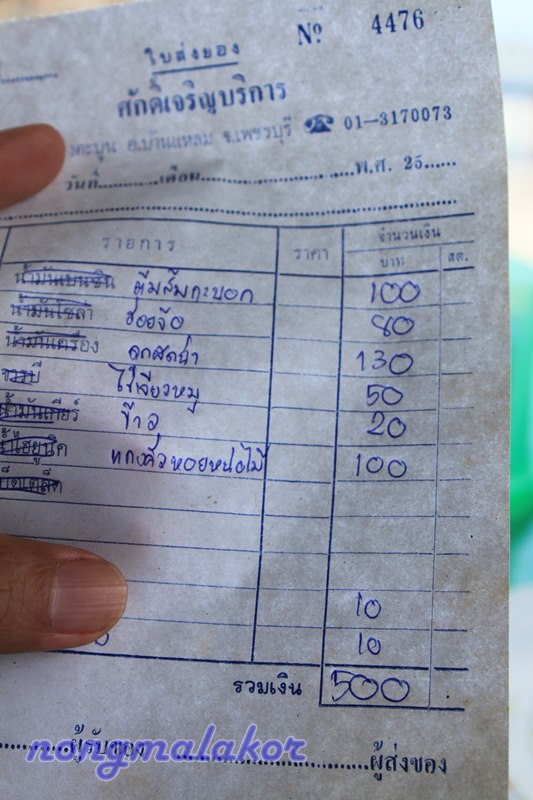 Nº 4476
ใบส่งของ
ศักดิ์เจริญบริการ
ตะบูน อ.บ้านแหลม จ.เพชรบุรี ☎ 01-3170073
วันที่............เดือน..............................พ.ศ. 25......
รายการ ราคา จำนวนเงิน
บาท สต.
น้ำมันเบนซิน 100
น้ำมันโซล่า ฮ่อยจ๊อ 80
น้ำมันเครื่อง 130
จารบี ไข่เจียวหมู 50
น้ำมันเกียร์ ข้าว 20
แกงคั่วหอยหน่อไม้ 100
10
10
รวมเงิน 500
ผู้รับของ ผู้ส่งของ
nongmalakor